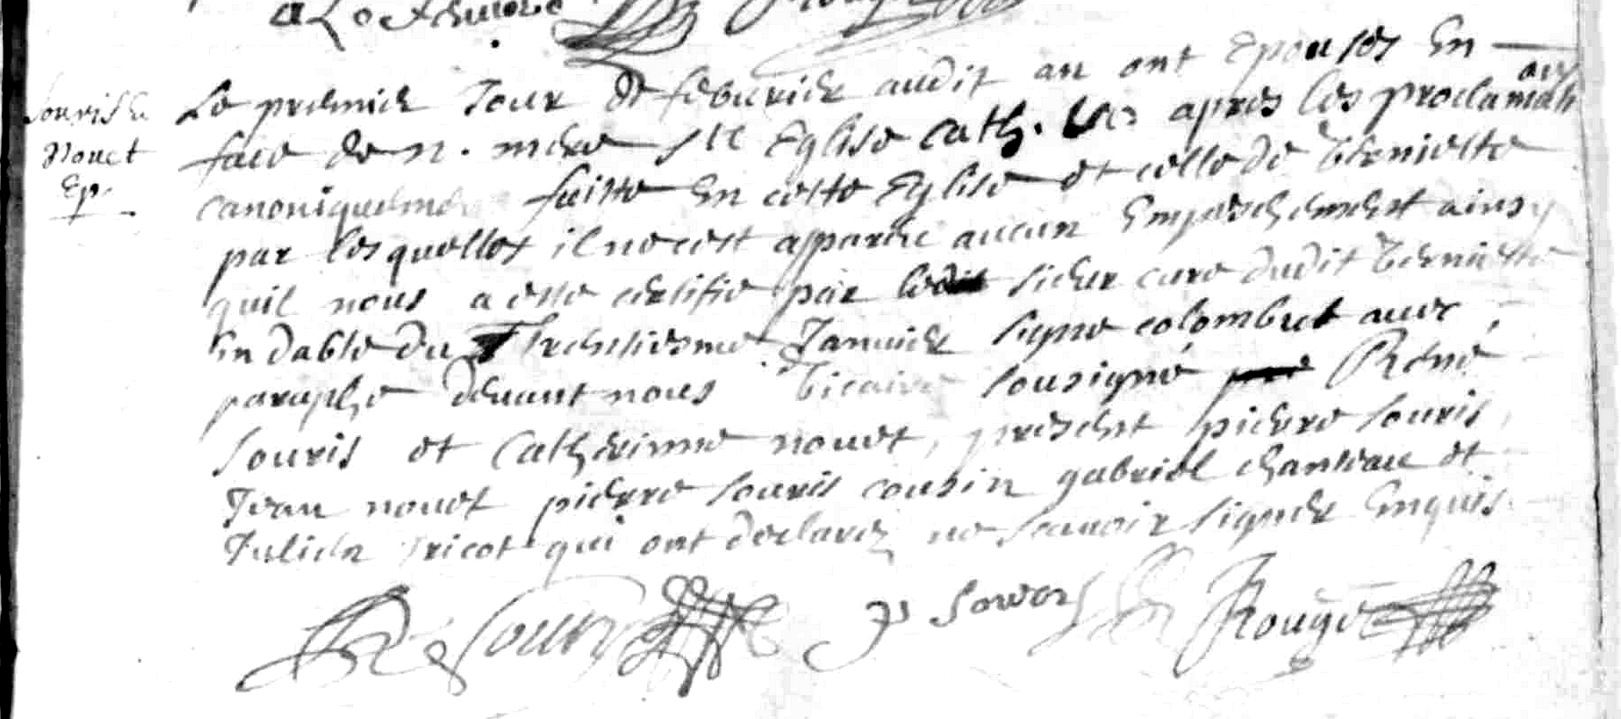 Souris &
Nouet
Ep.
Le premier Jour de feburier audit an ont Epousés En
face de n. mere ste Eglise cath. apres les proclamaõns
canoniquemen faitte En cette Eglise et celle de Bernieste
par les quelles il ne cest apparcu aucun Empeschement ainsy
quil nous a este certifie par ledit sieur cure dudit Bernieste
En dabte du Trentiesme Janvier signe colombet avec
paraphe devant nous Vicaire sousigné René
Souris et Catherinne nouet, present pierre Souris
Jean nouet pierre souris cousin gabriel chanteau et
Julien tricot qui ont declarez ne scavoir signer Enquis
R Souris P Souris Rouge